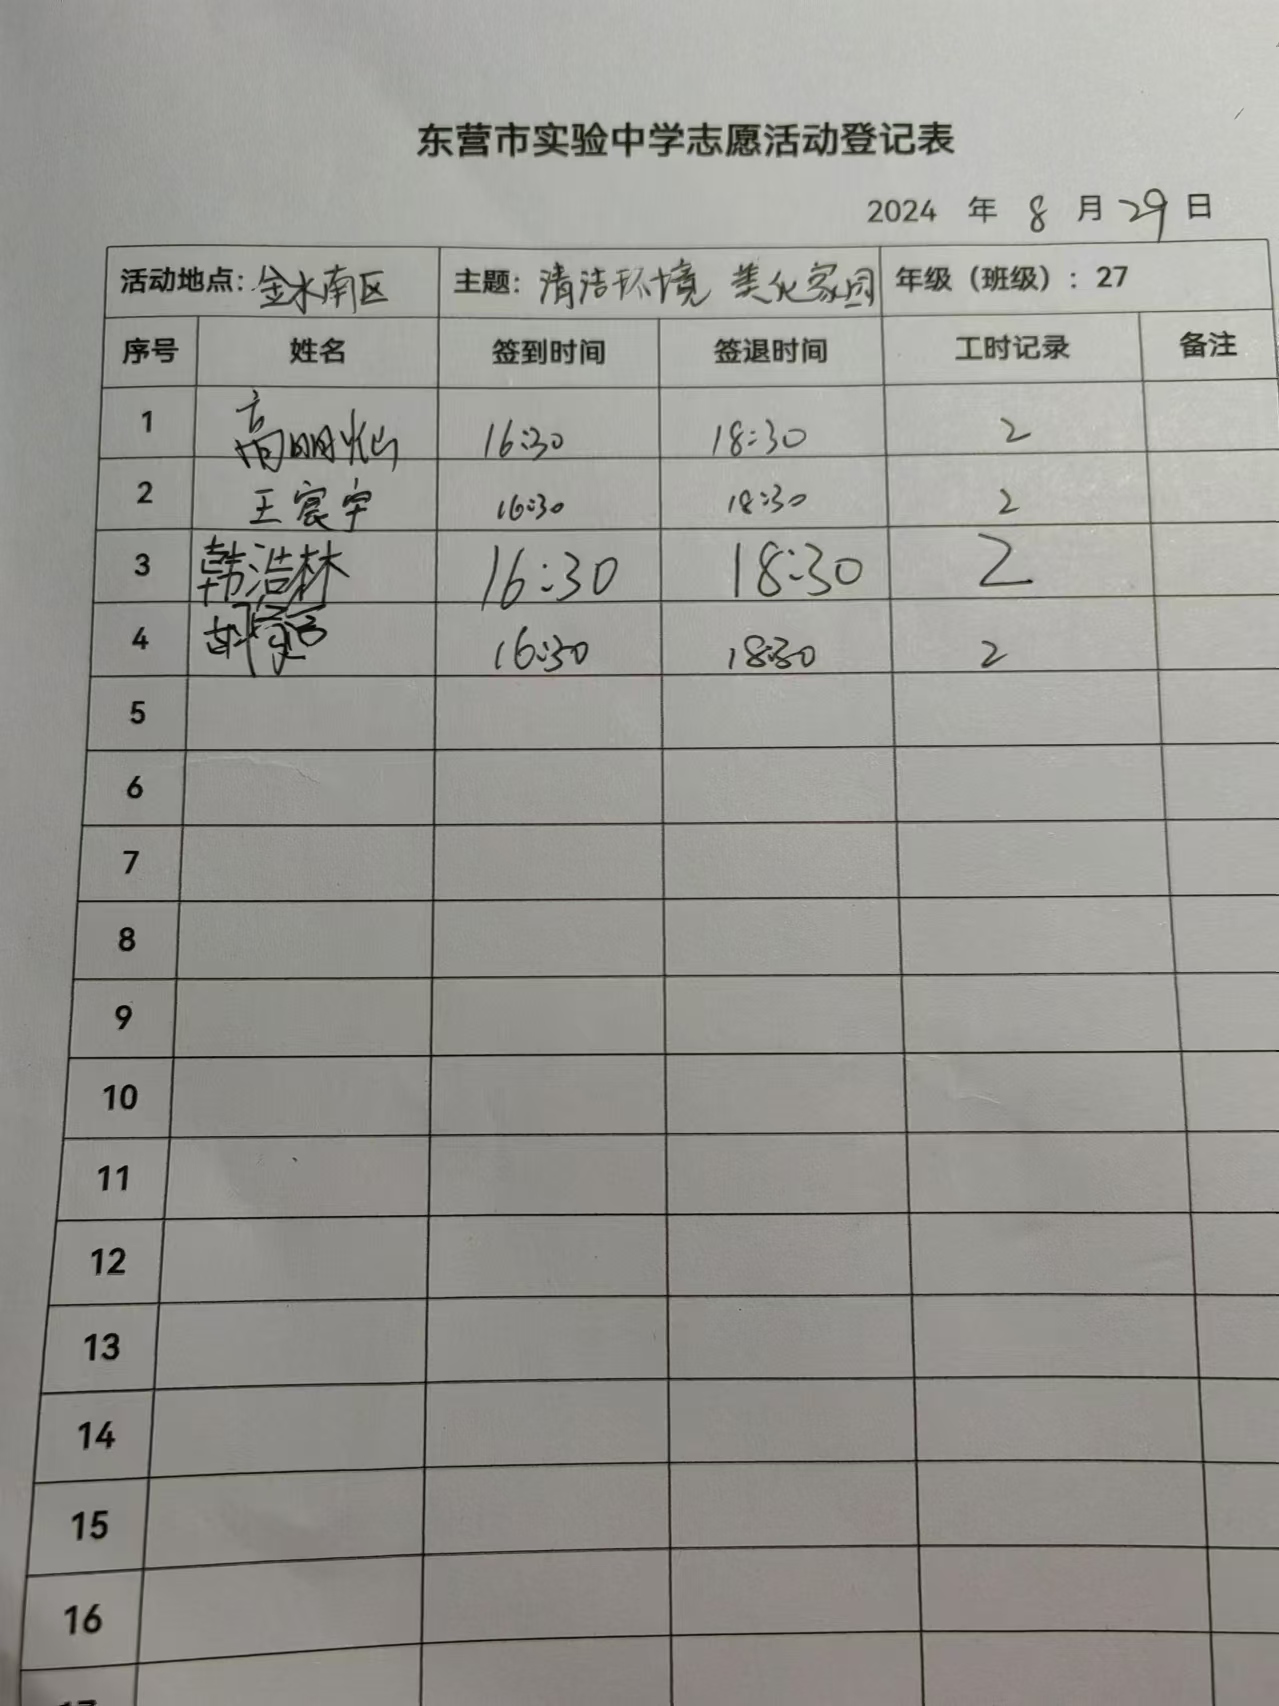 东营市实验中学志愿活动登记表
2024 年 8 月 29 日
活动地点: 金水南区 主题: 清洁环境 美化家园 年级（班级）: 27
序号 姓名 签到时间 签退时间 工时记录 备注
1 高明灿 16:30 18:30 2
2 王宸宇 16:30 18:30 2
3 韩浩林 16:30 18:30 2
4 16:30 18:30 2
5
6
7
8
9
10
11
12
13
14
15
16
17